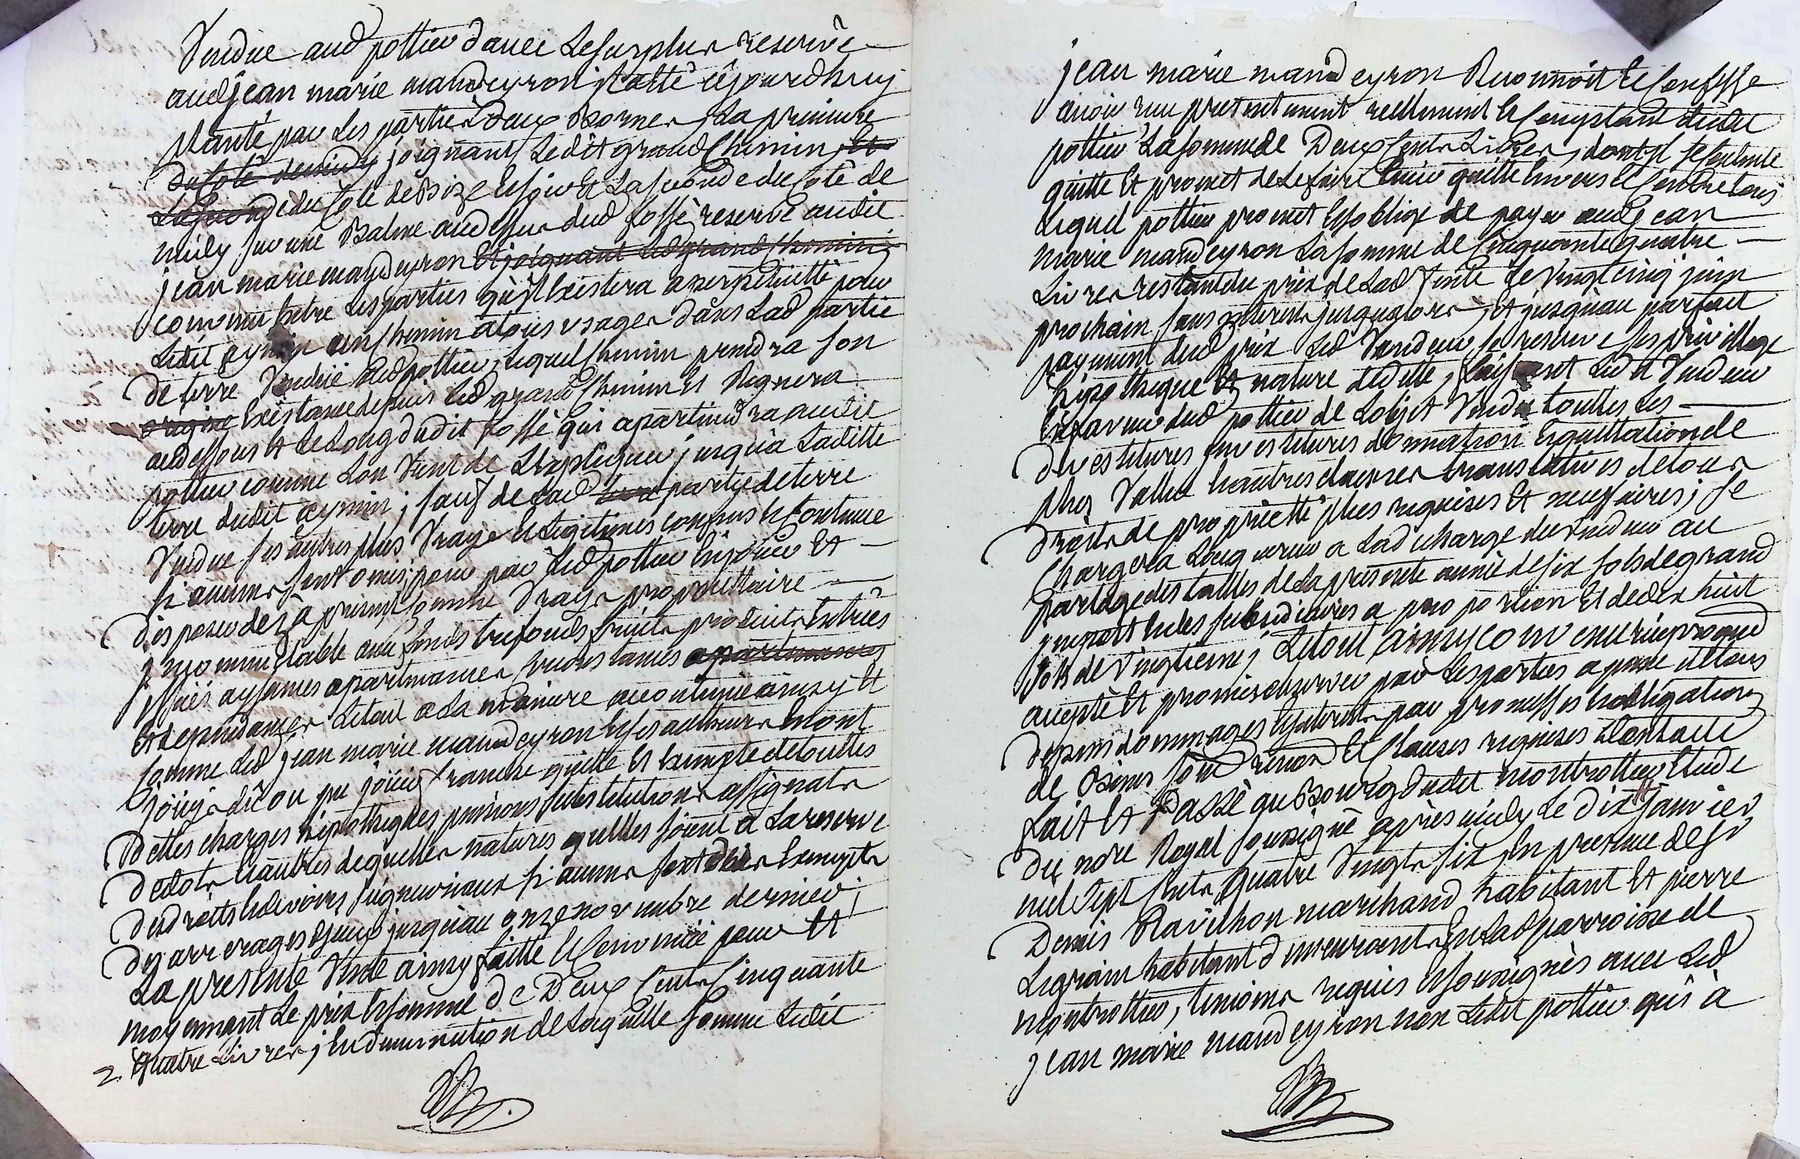 Vendue aud pottier d'avec Le surplus reservé
aud jean marie mandeyron Ilatté cejourdhuy
planté par Les parties Deux Bornes, La premiere
Du Coté de joignant Ledit grand Chemin, Et
La seconde du Coté de Bize Et soir Et La seconde du Coté de
midy sur une Balme au dessus dud fossé reservé audit
jean marie mandeyron Et joignant Led grand Chemin
convenu Entre Les parties qu'il Existera a perpétuitté pour
Ledit un Chemin a tous usages dans Lad partie
de terre Vendue aud pottier, Lequel Chemin prendra son
origine Existance depuis Led grand Chemin Et Regnera
au dessous Et Le Long dudit fossé qui apartiendra audit
pottier comme L'on Vient de L'Expliquer jusqua Laditte
terre dudit aymin ; sauf de Lad partie de terre
Vendue ses autres plus Vrayes Et Legitimes confins Et Contenue
si aucuns sont omis, pour par Led pottier En jouir Et
disposer dez a present Comme Vraye propriettaire
jncommutable aux fonds trefonds fruits produits Entrées
jssües aysances apartenances
Et dependances Le tout a La maniere accoutumée ainsy Et
Comme Led jean marie mandeyron Et ses autheurs En ont
joüis dû ou pu joüir franche quitte Et Exempte de touttes
Dettes charges hipotheques pensions substitutions assignats
de dots Et autres de quelles natures qu'elles soient a La reserve
des droits Et devoirs seigneuriaux si aucuns sont dûs Exempts
des arrerages d'yceux jusqu'au onze novembre dernier ;
La presente Vente ainsy faitte Et Convenüe pour Et
moyennant Le prix Et somme de Deux Cents Cinquante
2. quatre Livres ; En diminution de Laquelle somme Ledit
jean marie mandeyron Reconnoit Et Confesse
avoir reçu presentement reellement Et Comptant dudit
pottier La somme de Deux Cents Livres, dont il se Contente
quitte Et promet de Le faire tenir quitte Envers Et Contre tous
Lequel pottier promet Et s'oblige de payer aud jean
marie mandeyron La somme de Cinquante quatre
Livres restant du prix de Lad Vente Le Vingt cinq juin
prochain sans interets jusqu'alors ; Et jusqu'au parfait
payement dud prix Led Vendeur se reserve ses privillege
hipotheque Et nature de dette, Led Vendeur
En faveur dud pottier de L'objet Vendu touttes Les
Devestitures jnvestitures donnation Et quittation de
plus Value Et autres clauses translatives de tous
droits de proprietté plus requises Et necessaires ; Se
Chargera Lacquereur a La decharge du Vendeur au
partage des tailles de La presente année de six sols de grand
jmpots Et des subsidiaires a proportion Et de dix huit
sols de Vingtiemes ; Le tout ainsy convenu réciproqt
accepté Et promis observer par Les parties a peine de tous
depens dommages Interets par promesses Et obligations
de Biens soumt renont Et Clauses requises dont acte
fait Et Passé au Bourg dudit montrottier Etude
Du nore Royal soussigné après midy Le Dix janvier
mil Sept Cents Quatre Vingts Six En presence de Sr
Denis Ravichon marchand habitant Et pierre
Legrain habitant demeurants En Lad parroisse de
montrottier, temoins requis Et soussignés avec Led
jean marie mandeyron non Ledit pottier qui a